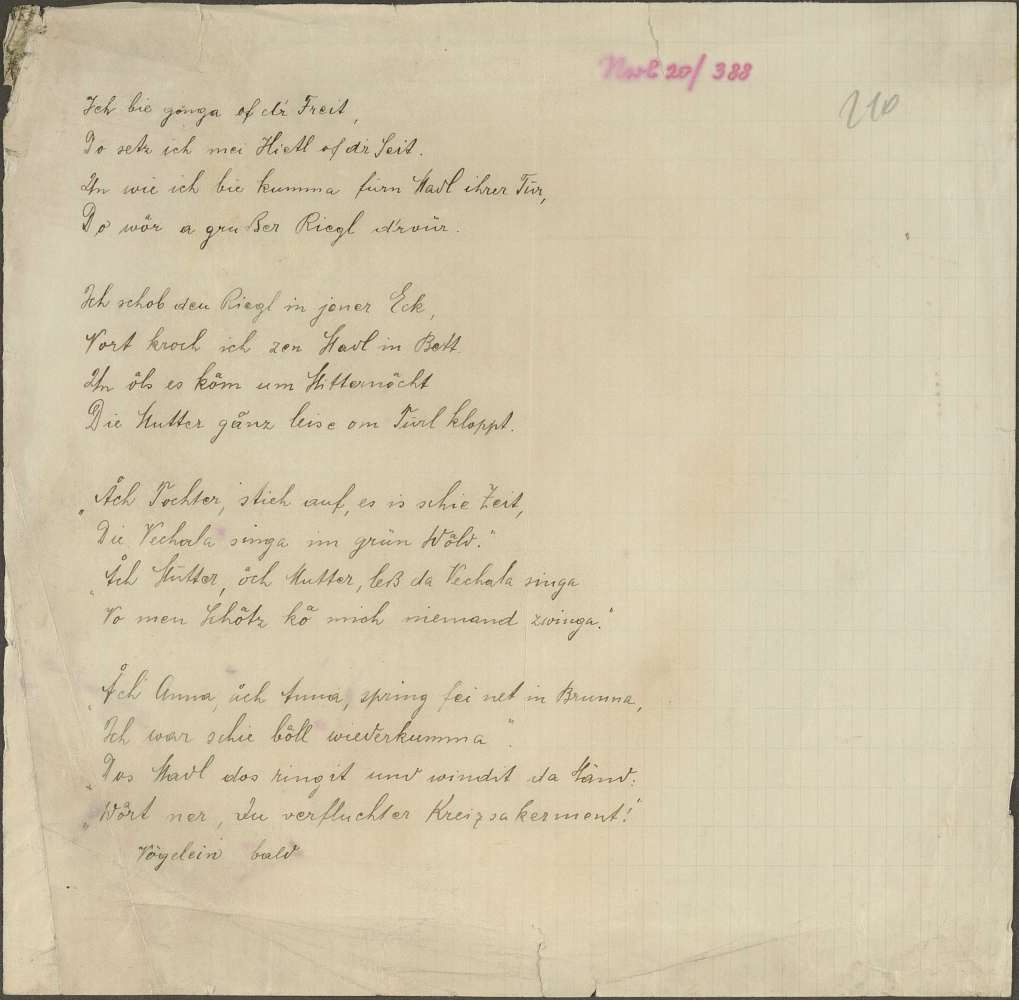 NwlB 20/388
210
Ich bie gånga of dr Freit,
Do setz ich mei Hietl of dr Seit.
Un wie ich bie kumma fürn Madl ihrer Tür,
Do wår a grußer Riegl drvür.
Ich schob den Riegl in jener Eck,
Nort kroch ich zen Madl in Bett.
Un åls es kåm um Mitternåcht
Die Mutter gånz leise om Türl kloppt.
„Åch Tochter, stieh auf, es is schie Zeit,
Die Vechala singa im grün Wåld."
„Åch Mutter, åch Mutter, leß da Vechala singa
Vo men Schåtz kå mich niemand zwinga."
„Åch Anna, åch Anna, spring fei net in Brunna,
Ich war schie båll wiederkumma".
Dos Madl dos ringit und windit da Händ:
„Wårt ner, Du verfluchter Kreizsakerment!"
Vögelein bald